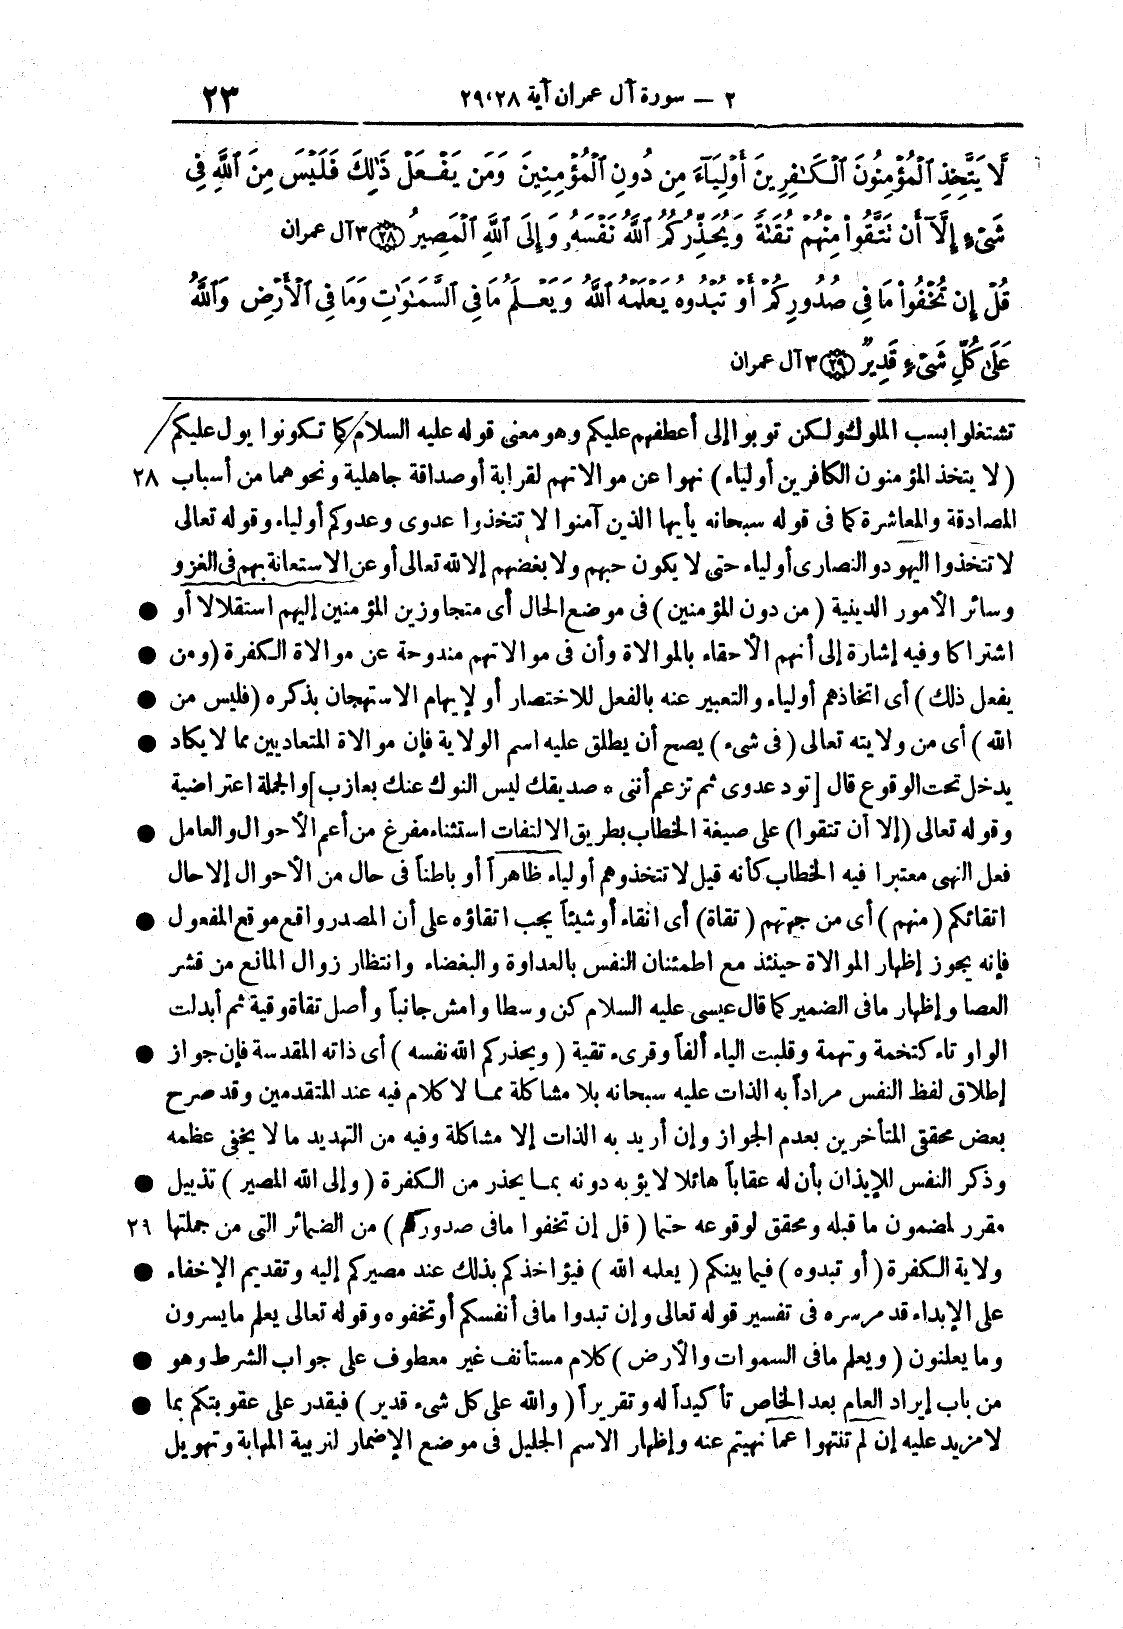 ٢ – سورة آل عمران آية ٢٩،٢٨ ٢٣
لَّا يَتَّخِذِ ٱلْمُؤْمِنُونَ ٱلْكَٰفِرِينَ أَوْلِيَآءَ مِن دُونِ ٱلْمُؤْمِنِينَ وَمَن يَفْعَلْ ذَٰلِكَ فَلَيْسَ مِنَ ٱللَّهِ فِى
شَىْءٍ إِلَّآ أَن تَتَّقُوا۟ مِنْهُمْ تُقَىٰةً وَيُحَذِّرُكُمُ ٱللَّهُ نَفْسَهُۥ وَإِلَى ٱللَّهِ ٱلْمَصِيرُ (٢٨) ٣ آل عمران
قُلْ إِن تُخْفُوا۟ مَا فِى صُدُورِكُمْ أَوْ تُبْدُوهُ يَعْلَمْهُ ٱللَّهُ وَيَعْلَمُ مَا فِى ٱلسَّمَٰوَٰتِ وَمَا فِى ٱلْأَرْضِ وَٱللَّهُ
عَلَىٰ كُلِّ شَىْءٍ قَدِيرٌ (٢٩) ٣ آل عمران
تشتغلوا بسب الملوك ولكن توبوا إلى أعطفهم عليكم وهو معنى قوله عليه السلام كما تكونوا يول عليكم
(لا يتخذ المؤمنون الكافرين أولياء) نهوا عن موالاتهم لقرابة أو صداقة جاهلية ونحوهما من أسباب ٢٨
المصادقة والمعاشرة كما فى قوله سبحانه يأيها الذين آمنوا لا تتخذوا عدوى وعدوكم أولياء وقوله تعالى
لا تتخذوا اليهود والنصارى أولياء حتى لا يكون حبهم ولا بغضهم إلا لله تعالى أو عن الاستعانة بهم فى الغزو
وسائر الأمور الدينية (من دون المؤمنين) فى موضع الحال أى متجاوزين المؤمنين إليهم استقلالا أو ●
اشتراكا وفيه إشارة إلى أنهم الأحقاء بالموالاة وأن فى موالاتهم مندوحة عن موالاة الكفرة (ومن ●
يفعل ذلك) أى اتخاذهم أولياء والتعبير عنه بالفعل للاختصار أو لإيهام الاستهجان بذكره (فليس من ●
الله) أى من ولايته تعالى (فى شىء) يصح أن يطلق عليه اسم الولاية فإن موالاة المتعاديين مما لا يكاد ●
يدخل تحت الوقوع قال [تود عدوى ثم تزعم أننى * صديقك ليس النوك عنك بعازب] والجملة اعتراضية
وقوله تعالى (إلا أن تتقوا) على صيغة الخطاب بطريق الالتفات استثناء مفرغ من أعم الأحوال والعامل ●
فعل النهى معتبرا فيه الخطاب كأنه قيل لا تتخذوهم أولياء ظاهراً أو باطناً فى حال من الأحوال إلا حال
اتقائكم (منهم) أى من جهتهم (تقاة) أى اتقاء أو شيئاً يجب اتقاؤه على أن المصدر واقع موقع المفعول ●
فإنه يجوز إظهار الموالاة حينئذ مع اطمئنان النفس بالعداوة والبغضاء وانتظار زوال المانع من قشر
العصا وإظهار ما فى الضمير كما قال عيسى عليه السلام كن وسطا وامش جانباً وأصل تقاة وقية ثم أبدلت
الواو تاء كتخمة وتهمة وقلبت الياء ألفاً وقرىء تقية (ويحذركم الله نفسه) أى ذاته المقدسة فإن جواز ●
إطلاق لفظ النفس مراداً به الذات عليه سبحانه بلا مشاكلة مما لا كلام فيه عند المتقدمين وقد صرح
بعض محققى المتأخرين بعدم الجواز وإن أريد به الذات إلا مشاكلة وفيه من التهديد ما لا يخفى عظمه
وذكر النفس للإيذان بأن له عقاباً هائلا لا يؤبه دونه بما يحذر من الكفرة (وإلى الله المصير) تذييل ●
مقرر لمضمون ما قبله ومحقق لوقوعه حتما (قل إن تخفوا ما فى صدوركم) من الضمائر التى من جملتها ٢٩
ولاية الكفرة (أو تبدوه) فيما بينكم (يعلمه الله) فيؤاخذكم بذلك عند مصيركم إليه وتقديم الإخفاء ●
على الإبداء قد مر سره فى تفسير قوله تعالى وإن تبدوا ما فى أنفسكم أو تخفوه وقوله تعالى يعلم ما يسرون
وما يعلنون (ويعلم ما فى السموات والأرض) كلام مستأنف غير معطوف على جواب الشرط وهو ●
من باب إيراد العام بعد الخاص تأكيداً له وتقريراً (والله على كل شىء قدير) فيقدر على عقوبتكم بما ●
لا مزيد عليه إن لم تنتهوا عما نهيتم عنه وإظهار الاسم الجليل فى موضع الإضمار لتربية المهابة وتهويل